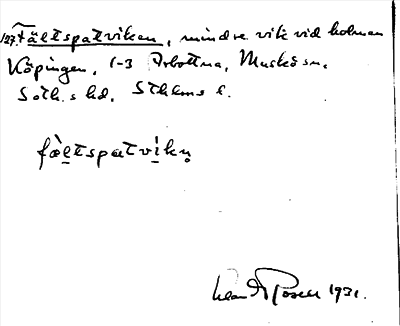 127. Fältspatviken, mindre vik vid holmen
Köpingen, 1-3 Arbottna, Muskö sn,
Soth.s hd, Sthlms l.
fàltspatvíkn̥
1931.